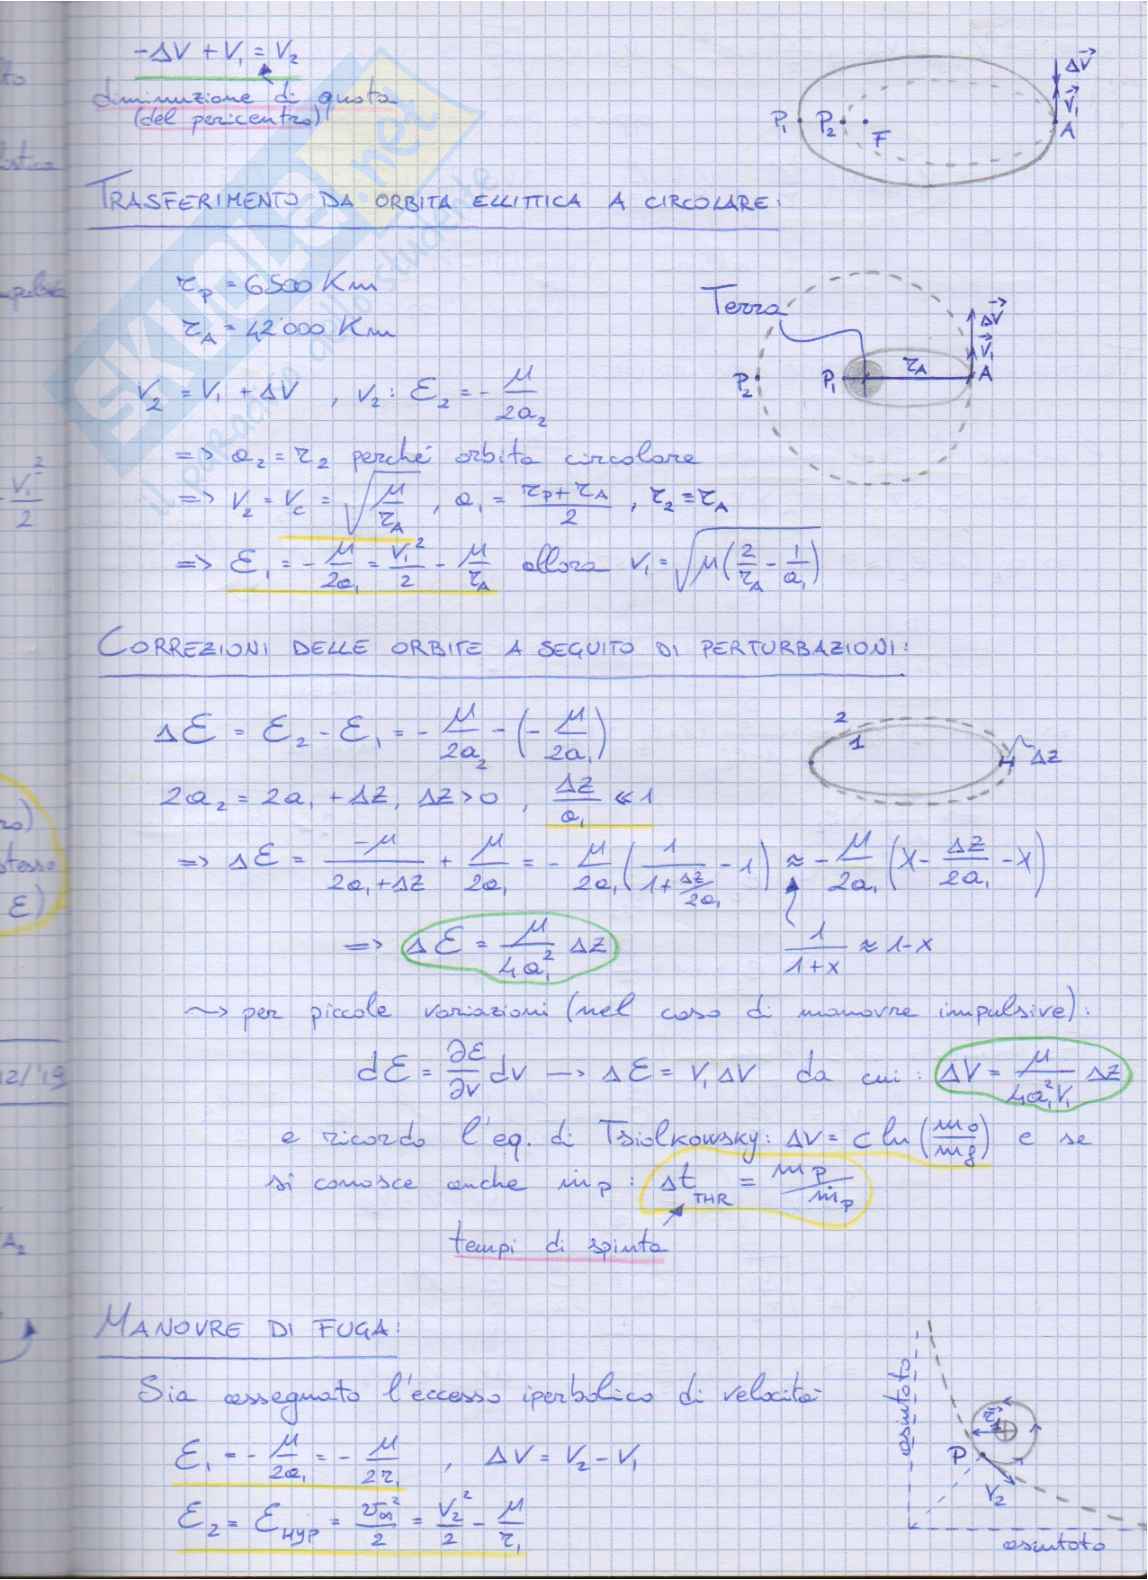 -ΔV + V₁ = V₂
diminuzione di quota
(del pericentro)
P₁ P₂ F A V⃗₁ ΔV⃗
TRASFERIMENTO DA ORBITA ELLITTICA A CIRCOLARE:
r_P = 6500 Km
r_A = 42'000 Km
Terra
P₂ P₁ r_A A V⃗₁ ΔV⃗
V₂ = V₁ + ΔV , V₂ : Ɛ₂ = - μ/2a₂
=> a₂ = r₂ perché orbita circolare
=> V₂ = V_c = √(μ/r_A) , a₁ = (r_P + r_A)/2 , r₂ = r_A
=> Ɛ₁ = - μ/2a₁ = V₁²/2 - μ/r_A allora V₁ = √(μ(2/r_A - 1/a₁))
CORREZIONI DELLE ORBITE A SEGUITO DI PERTURBAZIONI:
ΔƐ = Ɛ₂ - Ɛ₁ = - μ/2a₂ - (- μ/2a₁)
2 1 ΔZ
2a₂ = 2a₁ + ΔZ, ΔZ > 0 , ΔZ/a₁ ≪ 1
=> ΔƐ = -μ/(2a₁+ΔZ) + μ/2a₁ = - μ/2a₁ (1/(1+ΔZ/2a₁) - 1) ≈ - μ/2a₁ (1 - ΔZ/2a₁ - 1)
=> ΔƐ = μ/4a₁² ΔZ
1/(1+x) ≈ 1-x
~> per piccole variazioni (nel caso di manovre impulsive):
dƐ = ∂Ɛ/∂v dv → ΔƐ = V₁ΔV da cui: ΔV = μ/4a₁²V₁ ΔZ
e ricordo l'eq. di Tsiolkowsky: ΔV = c ln(m₀/m_f) e se
si conosce anche ṁ_P : Δt_THR = m_P/ṁ_P
tempi di spinta
MANOVRE DI FUGA:
Sia assegnato l'eccesso iperbolico di velocità
Ɛ₁ = - μ/2a₁ = - μ/2r₁ , ΔV = V₂ - V₁
Ɛ₂ = Ɛ_HYP = v∞²/2 = V₂²/2 - μ/r₁
asintoto
r⃗₁
P
V₂
asintoto
SKUOLA.net
il paradiso dello studente